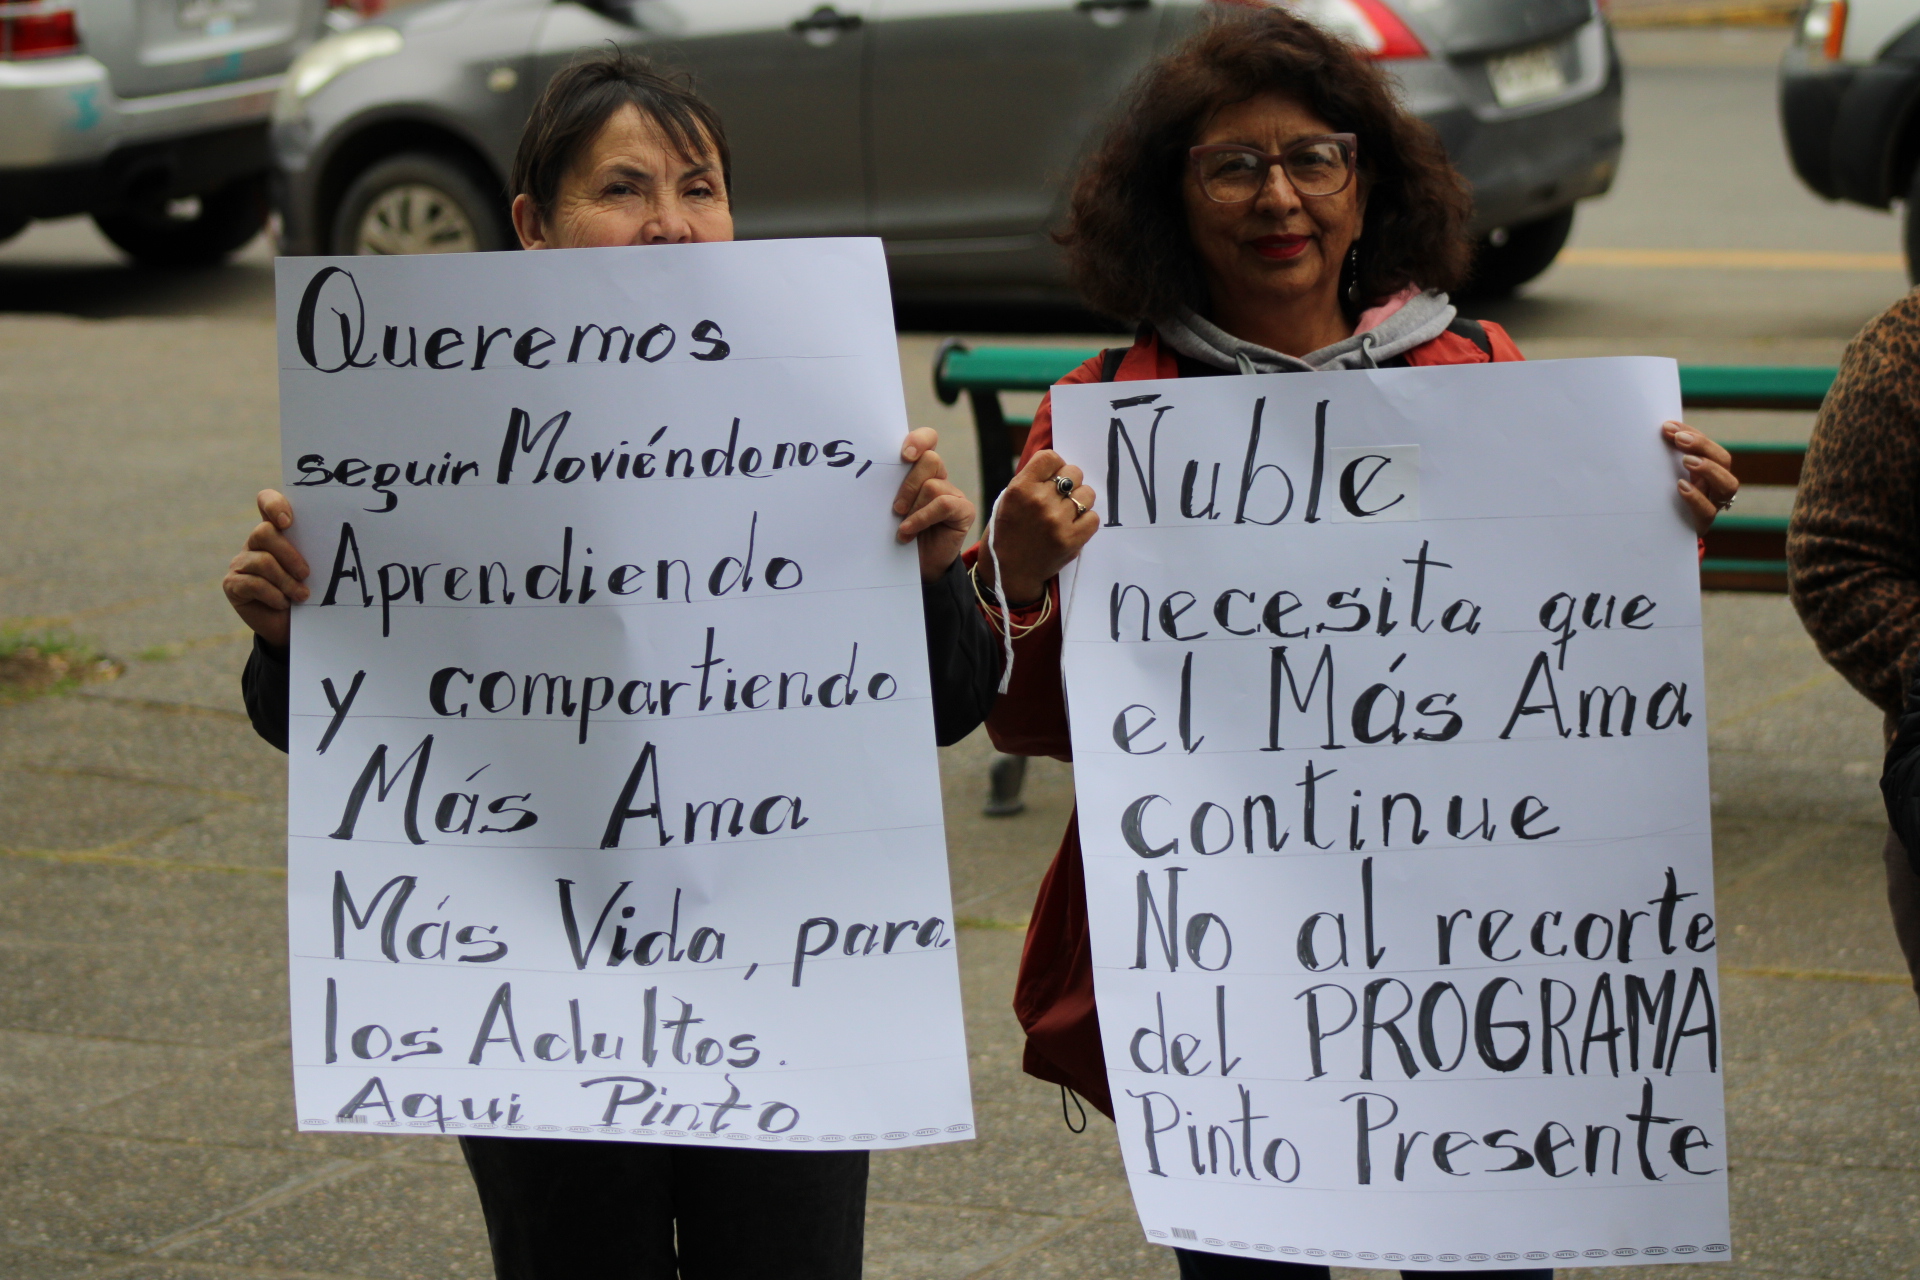 Queremos
seguir Moviéndonos,
Aprendiendo
y compartiendo
Más Ama
Más Vida, para
los Adultos.
Aqui Pinto
Ñuble
necesita que
el Más Ama
continue
No al recorte
del PROGRAMA
Pinto Presente